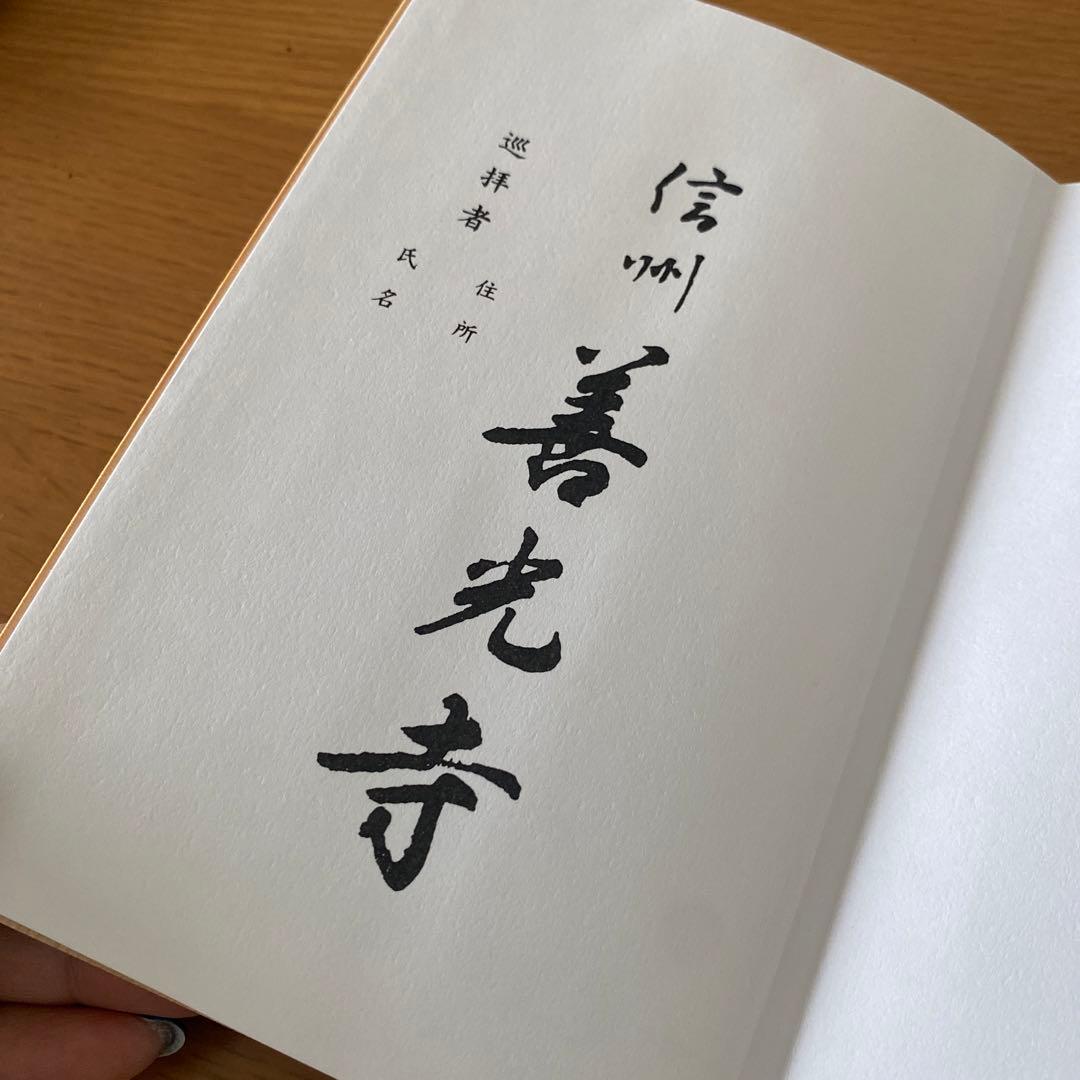 信州
善光寺
巡拝者
住所
氏名